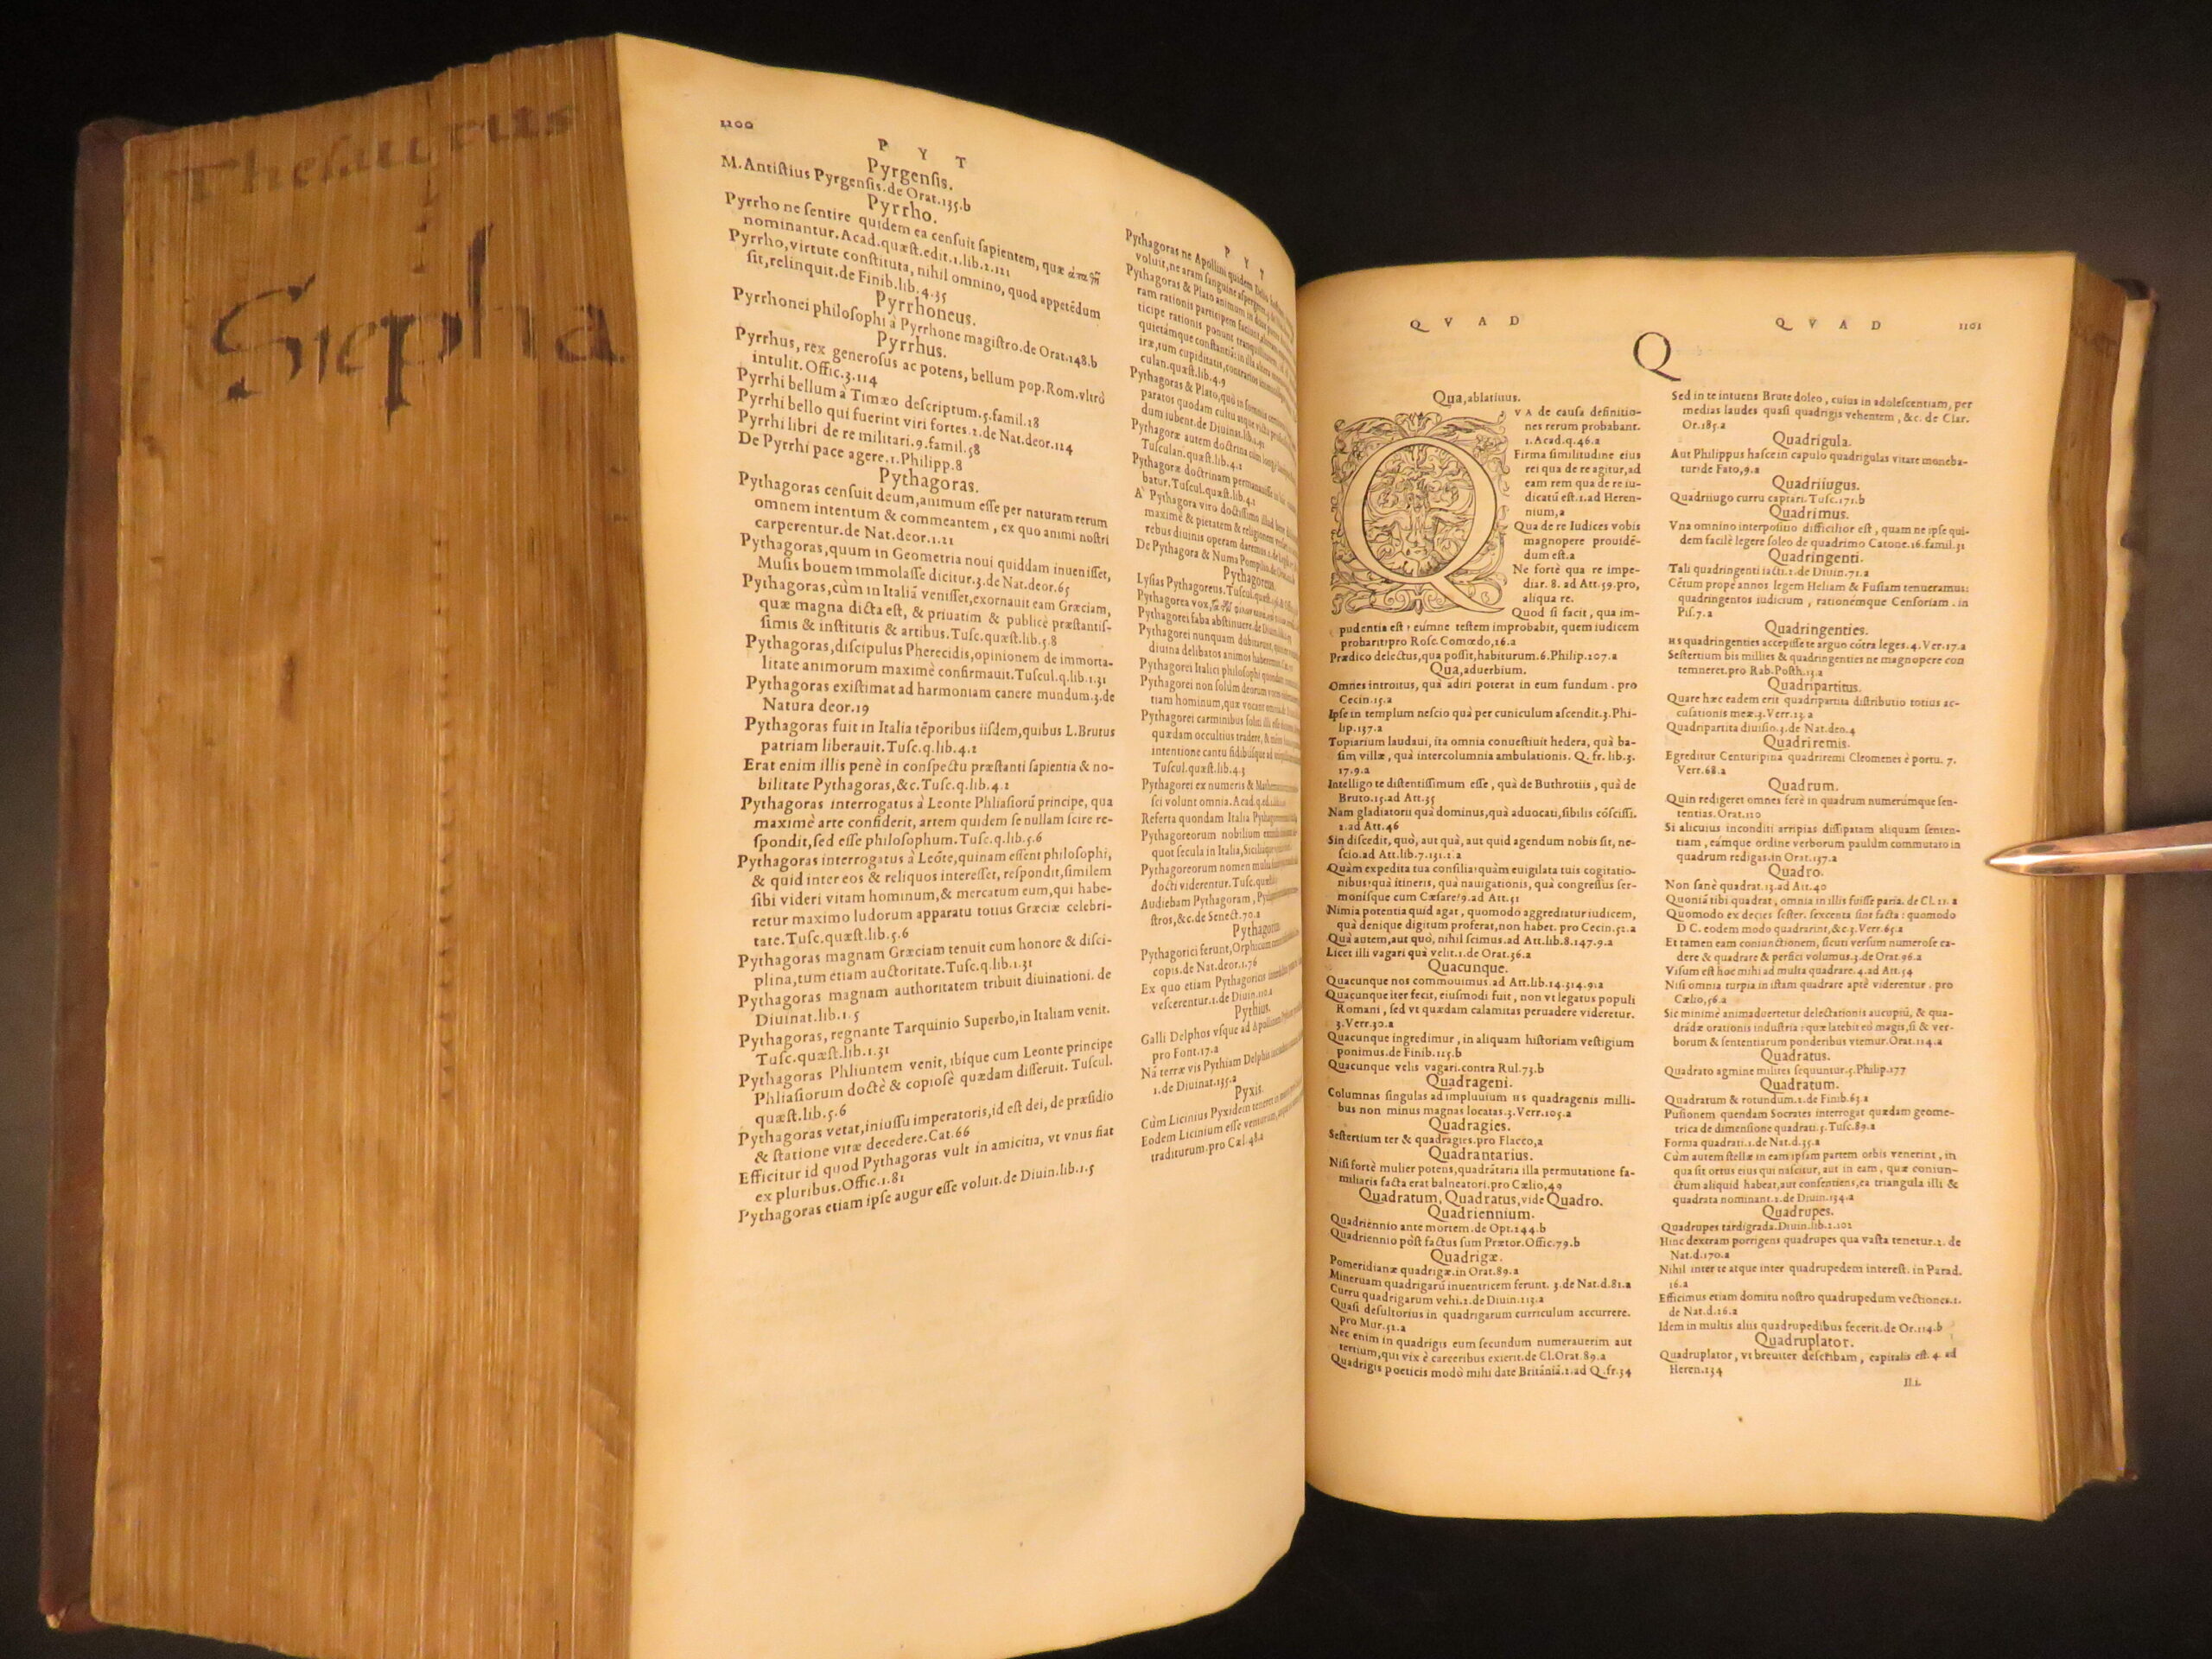 Thesaurus
Stepha
1100
P Y T
Pyrgensis.
M.Antiſtius Pyrgenſis.de Orat.135.b
Pyrrho.
Pyrrho ne ſentire quidem ea cenſuit ſapientem, quæ
nominantur.Acad.quæſt.edit.1.lib.2.121
Pyrrho,virtute conſtituta, nihil omnino, quod appetēdum
ſit,relinquit.de Finib.lib.4.35
Pyrrhoneus.
Pyrrhonei philoſophi à Pyrrhone magiſtro.de Orat.148.b
Pyrrhus.
Pyrrhus, rex generoſus ac potens, bellum pop.Rom.vltrò
intulit.Offic.3.114
Pyrrhi bellum à Timæo deſcriptum.5.famil.18
Pyrrhi bello qui fuerint viri fortes.2.de Nat.deor.114
Pyrrhi libri de re militari.9.famil.58
De Pyrrhi pace agere.1.Philipp.8
Pythagoras.
Pythagoras cenſuit deum,animum eſſe per naturam rerum
omnem intentum & commeantem , ex quo animi noſtri
carperentur.de Nat.deor.1.21
Pythagoras,quum in Geometria noui quiddam inueniſſet,
Muſis bouem immolaſſe dicitur.3.de Nat.deor.65
Pythagoras,cùm in Italiā veniſſet,exornauit eam Græciam,
quæ magna dicta eſt, & priuatim & publicè præſtantiſ-
ſimis & inſtitutis & artibus.Tuſc.quæſt.lib.5.8
Pythagoras,diſcipulus Pherecidis,opinionem de immorta-
litate animorum maximè confirmauit.Tuſcul.q.lib.1.31
Pythagoras exiſtimat ad harmoniam canere mundum.3.de
Natura deor.19
Pythagoras fuit in Italia tēporibus iiſdem,quibus L.Brutus
patriam liberauit.Tuſc.q.lib.4.2
Erat enim illis penè in conſpectu præſtanti ſapientia & no-
bilitate Pythagoras,&c.Tuſc.q.lib.4.2
Pythagoras interrogatus à Leonte Phliaſiorū principe, qua
maximè arte confiderit, artem quidem ſe nullam ſcire re-
ſpondit,ſed eſſe philoſophum.Tuſc.q.lib.5.6
Pythagoras interrogatus à Leōte,quinam eſſent philoſophi,
& quid inter eos & reliquos intereſſet, reſpondit,ſimilem
ſibi videri vitam hominum,& mercatum eum,qui habe-
retur maximo ludorum apparatu totius Græciæ celebri-
tate.Tuſc.quæſt.lib.5.6
Pythagoras magnam Græciam tenuit cum honore & diſci-
plina,tum etiam auctoritate.Tuſc.q.lib.1.31
Pythagoras magnam authoritatem tribuit diuinationi. de
Diuinat.lib.1.5
Pythagoras, regnante Tarquinio Superbo,in Italiam venit.
Tuſc.quæſt.lib.1.31
Pythagoras Phliuntem venit, ibíque cum Leonte principe
Phliaſiorum doctè & copioſè quædam diſſeruit. Tuſcul.
quæſt.lib.5.6
Pythagoras vetat,iniuſſu imperatoris,id eſt dei, de præſidio
& ſtatione vitæ decedere.Cat.66
Efficitur id quod Pythagoras vult in amicitia, vt vnus fiat
ex pluribus.Offic.1.81
Pythagoras etiam ipſe augur eſſe voluit.de Diuin.lib.1.5
P Y T
Pythagoras ne Apollini quidem
voluit,ne aram ſanguine
Pythagoras & Plato animum in duas
ram rationis participem faciunt
ticipe rationis ponunt tranquillitatem
quietámque conſtantiam
iræ,tum cupiditatis,contrarios
culan.quæſt.lib.4.9
Pythagoras & Plato,quò in ſomnis
paratos quodam cultu atque victu
dum iubent.de Diuinat.lib.
Pythagoræ autem doctrina cùm longè
Tuſculan.quæſt.lib.4.2
Pythagoræ doctrinam permanauiſſe
batur.Tuſcul.quæſt.lib.4.2
A Pythagora viro doctiſſimo
maximè & pietatem & religionem
rebus diuinis operam daremus.
De Pythagora & Numa Pompilio
Pythagoreus.
Lyſias Pythagoreus.Tuſcul.quæſt.
Pythagorea vox,
Pythagorei faba abſtinuere.de Diuin.
Pythagorei nunquam dubitarunt,
diuina delibatos animos
Pythagorei Italici philoſophi quondam
Pythagorei non ſolùm deorum
tiam hominum,quæ vocant
Pythagorei carminibus ſoliti illi eſſe
quædam occultius tradere, &
intentione cantu fidibúſque ad
Tuſcul.quæſt.lib.4.3
Pythagorei ex numeris & Mathematicorum
ſci volunt omnia.Acad.q.
Referta quondam Italia Pythagoreorum
Pythagoreorum nobilium
quot ſecula in Italia,Siciliáque
Pythagoreorum nomen
docti viderentur.Tuſc.
Audiebam Pythagoram,
ſtros,&c.de Senect.70.a
Pythagoricus
Pythagorici ferunt,Orphicum
copis.de Nat.deor.1.76
Ex quo etiam Pythagoricis
veſcerentur.1.de Diuin.
Pythius.
Galli Delphos vſque ad Apollinem
pro Font.17.a
Nā terræ vis Pythiam Delphis
1.de Diuinat.135.a
Pyxis.
Cùm Licinius Pyxidem teneret
Eodem Licinium eſſe venturum,
traditurum.pro Cæl.48.a
Q V A D
Q V A D
1101
Q
Qua,ablatiuus.
VA de cauſa definitio-
nes rerum probabant.
1.Acad.q.46.a
Firma ſimilitudine eius
rei qua de re agitur,ad
eam rem qua de re iu-
dicatū eſt.1.ad Heren-
nium,a
Qua de re Iudices vobis
magnopere prouidē-
dum eſt.a
Ne fortè qua re impe-
diar. 8. ad Att.59.pro,
aliqua re.
Quod ſi facit , qua im-
pudentia eſt? eúmne teſtem improbabit, quem iudicem
probarit?pro Roſc.Comœdo,16.a
Prædico delectus,qua poſſit,habiturum.6.Philip.107.a
Qua,aduerbium.
Omnes introitus, quà adiri poterat in eum fundum . pro
Cecin.15.a
Ipſe in templum neſcio quà per cuniculum aſcendit.3.Phi-
lip.137.a
Topiarium laudaui, ita omnia conueſtiuit hedera, quà ba-
ſim villæ , quà intercolumnia ambulationis. Q. fr. lib.3.
17.9.a
Intelligo te diſtentiſſimum eſſe , quà de Buthrotiis , quà de
Bruto.15.ad Att.35
Nam gladiatorii quà dominus,quà aduocati,ſibilis cōſciſſi.
2.ad Att.46
Sin diſcedit, quò, aut quà, aut quid agendum nobis ſit, ne-
ſcio.ad Att.lib.7.131.2.a
Quàm expedita tua conſilia?quàm euigilata tuis cogitatio-
nibus?quà itineris, quà nauigationis, quà congreſſus ſer-
moniſque cum Cæſare?9.ad Att.51
Nimia potentia quid agat , quomodo aggrediatur iudicem,
quà denique digitum proferat,non habet. pro Cecin.52.a
Quà autem,aut quò, nihil ſcimus.ad Att.lib.8.147.9.a
Licet illi vagari quà velit.1.de Orat.56.a
Quacunque.
Quacunque nos commouimus.ad Att.lib.14.314.9.a
Quacunque iter fecit, eiuſmodi fuit , non vt legatus populi
Romani , ſed vt quædam calamitas peruadere videretur.
3.Verr.30.a
Quacunque ingredimur , in aliquam hiſtoriam veſtigium
ponimus.de Finib.115.b
Quacunque velis vagari.contra Rul.73.b
Quadrageni.
Columnas ſingulas ad impluuium HS quadragenis milli-
bus non minus magnas locatas.3.Verr.105.a
Quadragies.
Seſtertium ter & quadragies.pro Flacco,a
Quadrantarius.
Niſi fortè mulier potens,quadrātaria illa permutatione fa-
miliaris facta erat balneatori.pro Cælio,49
Quadratum, Quadratus,vide Quadro.
Quadriennium.
Quadriennio ante mortem.de Opt.144.b
Quadriennio pòſt factus ſum Prætor.Offic.79.b
Quadrigæ.
Pomeridianæ quadrigæ.in Orat.89.a
Mineruam quadrigarū inuentricem ferunt. 3.de Nat.d.81.a
Curru quadrigarum vehi.2.de Diuin.113.a
Quaſi deſultorius in quadrigarum curriculum accurrere.
pro Mur.51.a
Nec enim in quadrigis eum ſecundum numerauerim aut
tertium,qui vix è carceribus exierit.de Cl.Orat.89.a
Quadrigis poeticis modò mihi date Britāniā.2.ad Q.fr.34
Sed in te intuens Brute doleo , cuius in adoleſcentiam, per
medias laudes quaſi quadrigis vehentem , &c. de Clar.
Or.185.a
Quadrigula.
Aut Philippus haſce in capulo quadrigulas vitare moneba-
tur?de Fato,9.a
Quadriiugus.
Quadriiugo curru captari.Tuſc.171.b
Quadrimus.
Vna omnino interpoſitio difficilior eſt , quam ne ipſe qui-
dem facilè legere ſoleo de quadrimo Catone.16.famil.31
Quadringenti.
Tali quadringenti iacti.2.de Diuin.71.a
Cētum prope annos legem Heliam & Fuſiam tenueramus:
quadringentos iudicium , rationémque Cenſoriam . in
Piſ.7.a
Quadringenties.
HS quadringenties accepiſſe te arguo cōtra leges.4.Ver.17.a
Seſtertium bis millies & quadringenties ne magnopere con
temneret.pro Rab.Poſth.15.a
Quadripartitus.
Quare hæc eadem erit quadripartita diſtributio totius ac-
cuſationis meæ.3.Verr.13.a
Quadripartita diuiſio.3.de Nat.deo.4
Quadriremis.
Egreditur Centuripina quadriremi Cleomenes è portu. 7.
Verr.68.a
Quadrum.
Quin redigeret omnes ferè in quadrum numerúmque ſen-
tentias.Orat.110
Si alicuius inconditi arripias diſſipatam aliquam ſenten-
tiam , eámque ordine verborum paulùm commutato in
quadrum redigas.in Orat.137.a
Quadro.
Non ſanè quadrat.13.ad Att.40
Quoniā tibi quadrat , omnia in illis fuiſſe paria. de Cl.11.a
Quomodo ex decies ſeſter. ſexcenta ſint facta : quomodo
D C. eodem modo quadrarint,&c.3.Verr.65.a
Et tamen eam coniunctionem, ſicuti verſum numeroſe ca-
dere & quadrare & perfici volumus.3.de Orat.96.a
Viſum eſt hoc mihi ad multa quadrare.4.ad Att.54
Niſi omnia turpia in iſtam quadrare aptè viderentur . pro
Cælio,56.a
Sic minimè animaduertetur delectationis aucupiū, & qua-
drādæ orationis induſtria : quæ latebit eò magis,ſi & ver-
borum & ſententiarum ponderibus vtemur.Orat.114.a
Quadratus.
Quadrato agmine milites ſequuntur.5.Philip.177
Quadratum.
Quadratum & rotundum.2.de Finib.63.a
Puſionem quendam Socrates interrogat quædam geome-
trica de dimenſione quadrati.5.Tuſc.89.a
Forma quadrati.1.de Nat.d.35.a
Cùm autem ſtellæ in eam ipſam partem orbis venerint , in
qua ſit ortus eius qui naſcitur, aut in eam , quæ coniun-
ctum aliquid habeat,aut conſentiens,ea triangula illi &
quadrata nominant.2.de Diuin.134.a
Quadrupes.
Quadrupes tardigrada.Diuin.lib.2.102
Hinc dextram porrigens quadrupes qua vaſta tenetur.2. de
Nat.d.170.a
Nihil inter te atque inter quadrupedem intereſt. in Parad.
16.a
Efficimus etiam domitu noſtro quadrupedum vectiones.1.
de Nat.d.16.a
Idem in multis aliis quadrupedibus fecerit.de Or.114.b
Quadruplator.
Quadruplator , vt breuiter deſcribam , capitalis eſt. 4. ad
Heren.134
II.i.